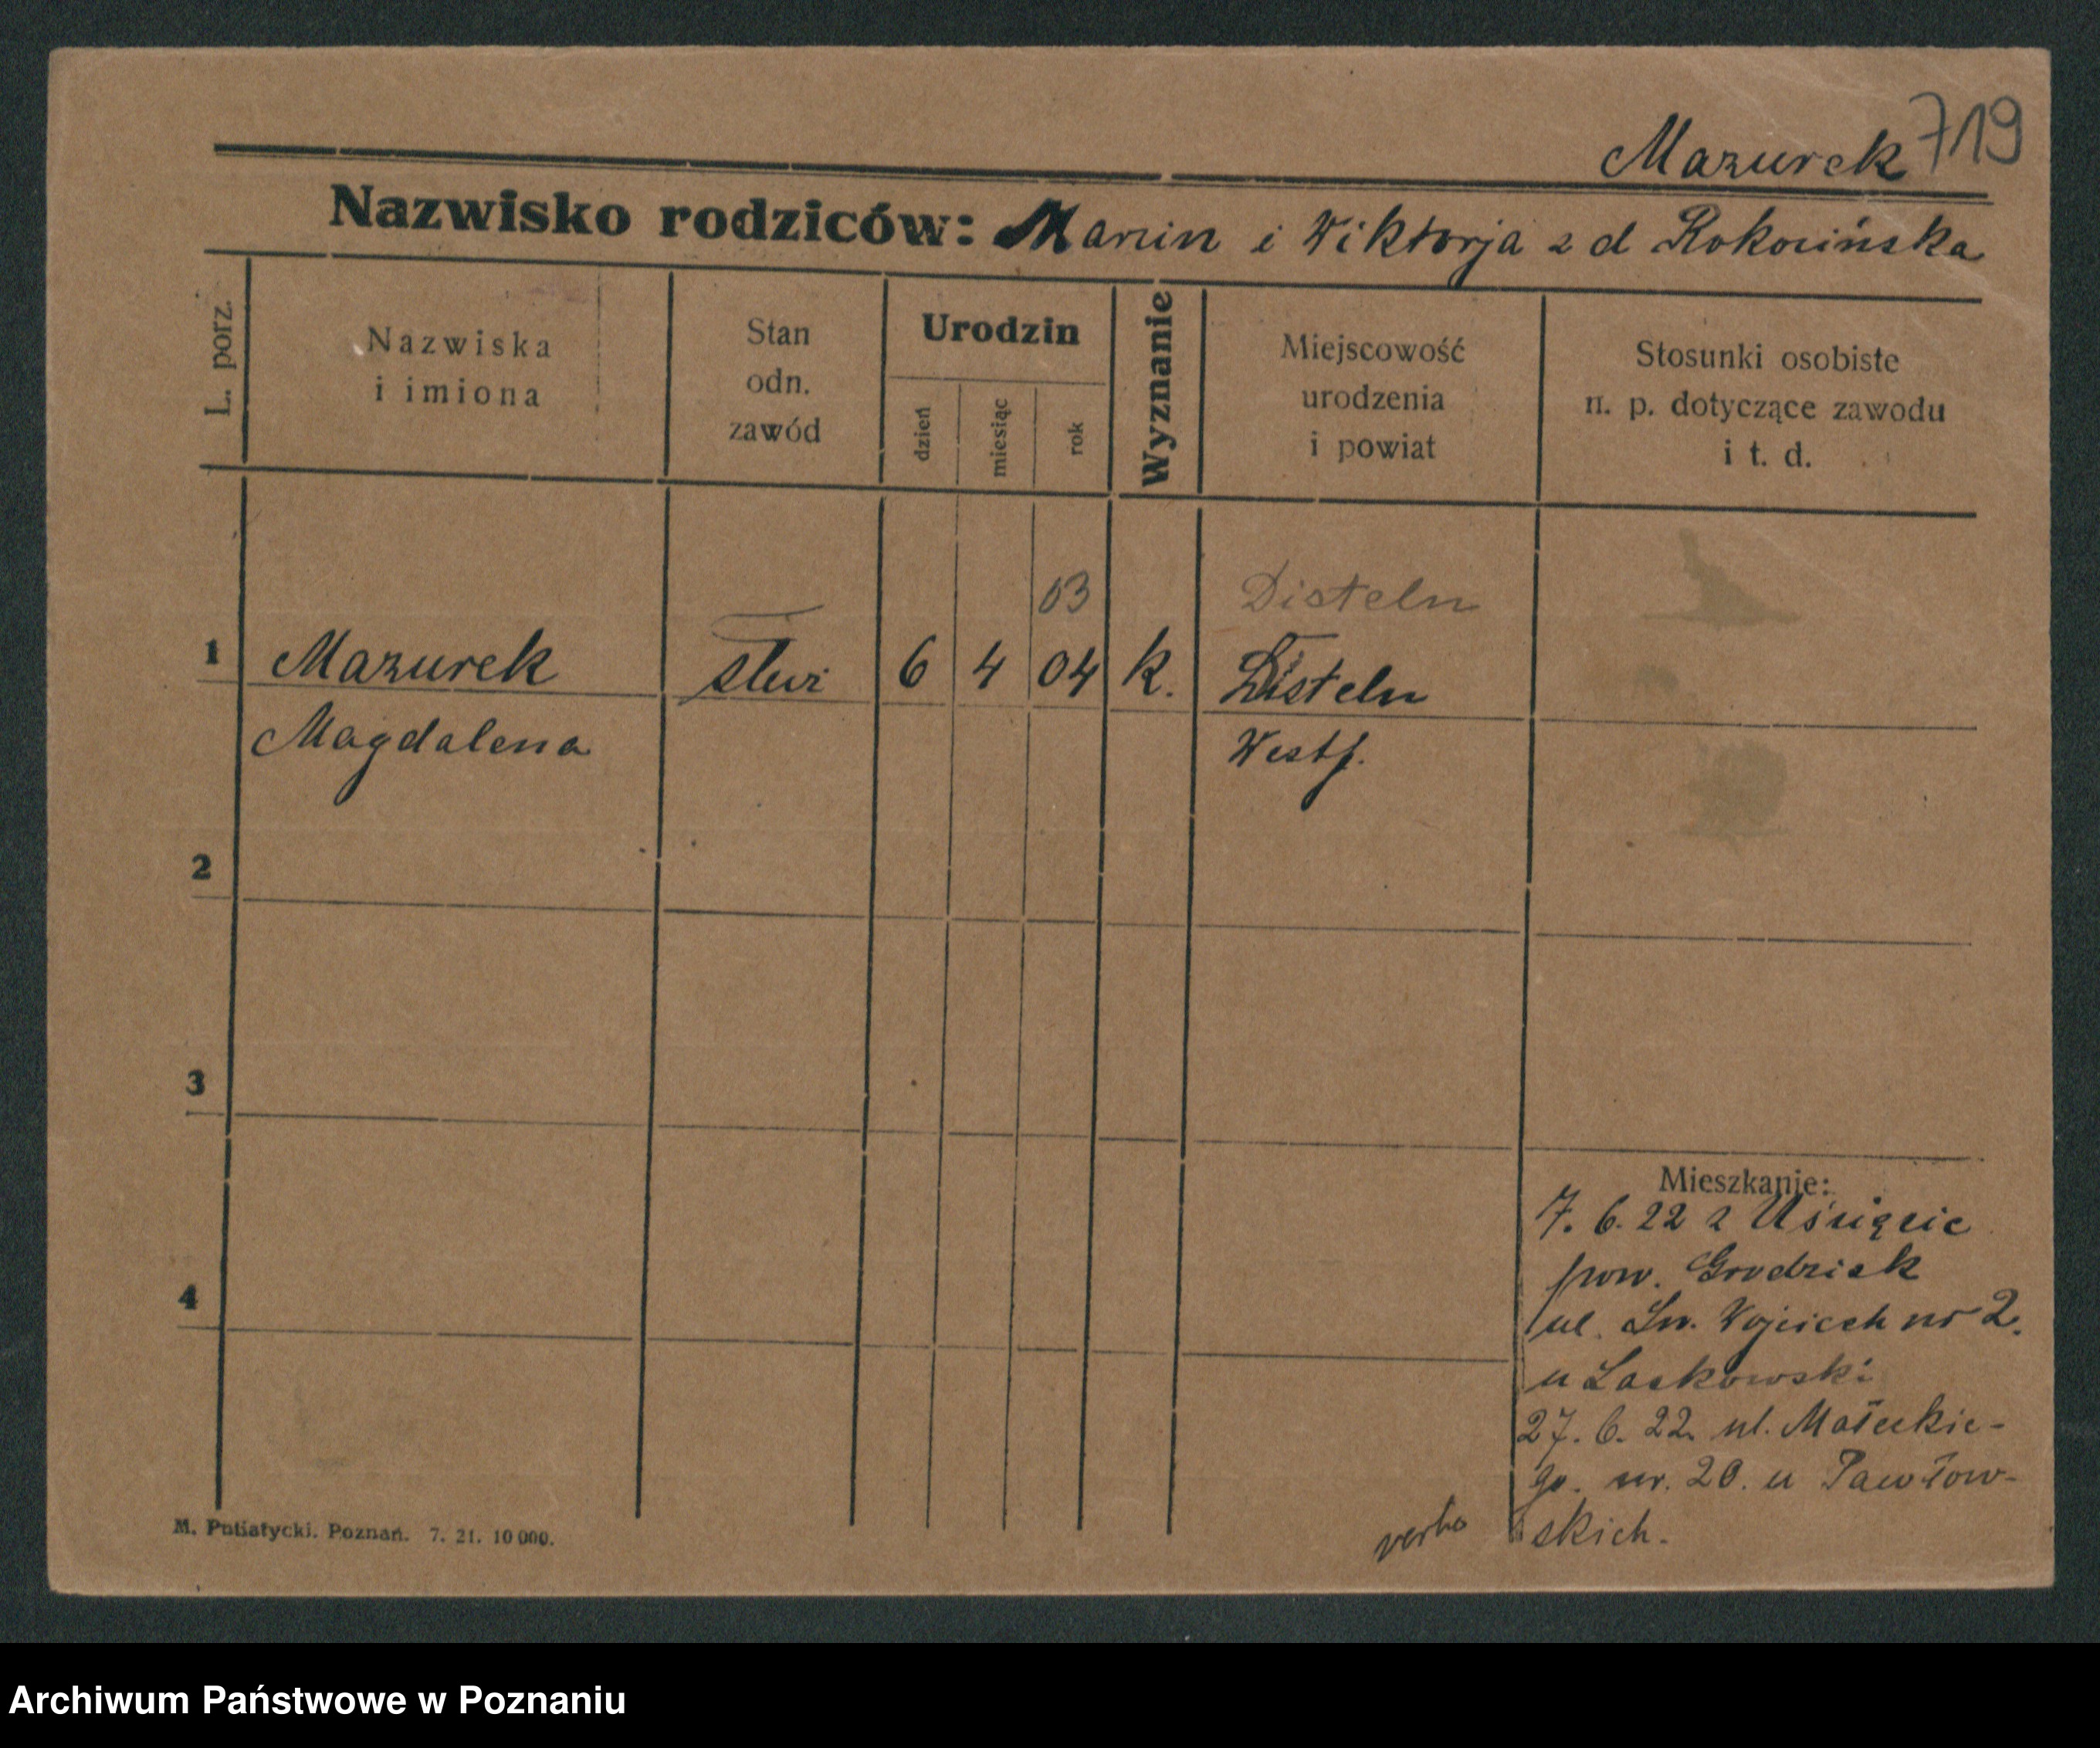 719
Mazurek
Nazwisko rodziców: Marcin i Wiktorja z d Rokocińska
L. porz.
Nazwiska
i imiona
Stan
odn.
zawód
Urodzin
dzień
miesiąc
rok
Wyznanie
Miejscowość
urodzenia
i powiat
Stosunki osobiste
n. p. dotyczące zawodu
i t. d.
03 Disteln
1 Mazurek 6 4 04 k. Disteln
Magdalena Westf.
2
3
4
Mieszkanie:
7. 6. 22 z
pow. Grodzisk
ul. Św. Wojciech nr 2.
u Laskowski
27. 6. 22. ul. Małeckie-
go. nr. 20. u Pawłow-
skich.
M. Putiatycki. Poznań. 7. 21. 10 000.
Archiwum Państwowe w Poznaniu